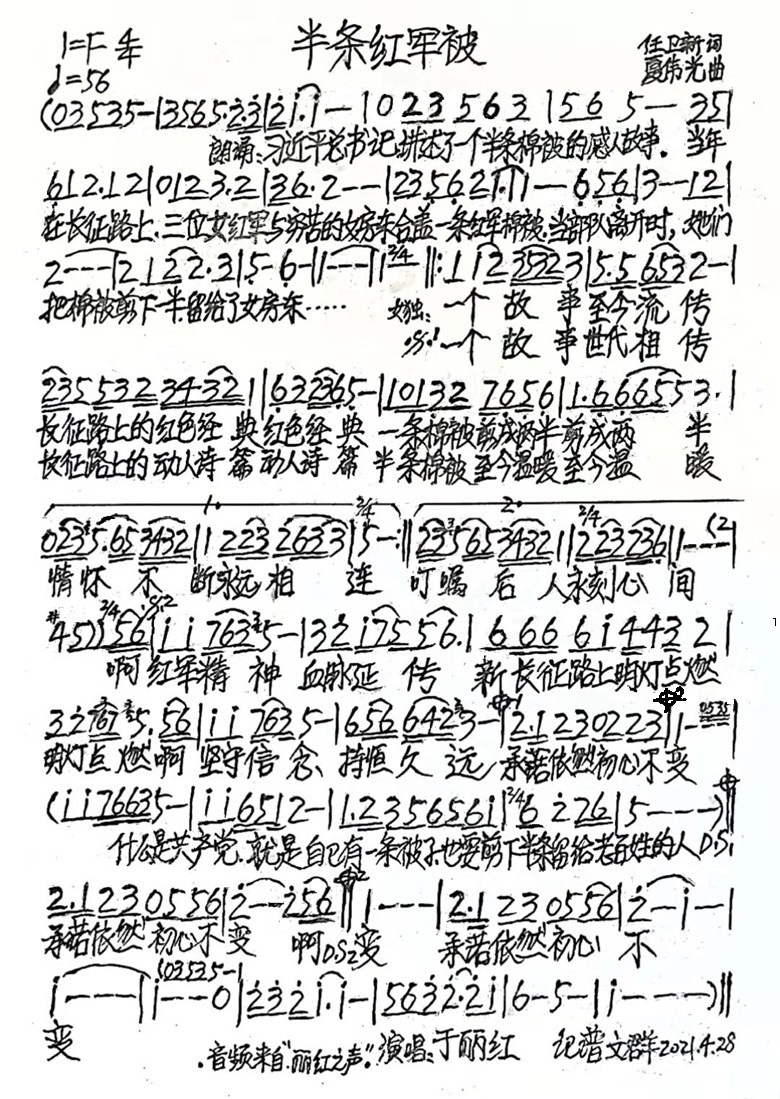 半条红军被
1=F 4/4
♩=56
任卫新词
夏伟光曲
(03535-|3565.23|2i.i-|023563|565-35|
朗诵：习近平总书记讲述了一个半条棉被的感人故事。当年
612.12|0123.2|36.2--|23562i.i|--656|3--12|
在长征路上，三位女红军与穷苦的女房东合盖一条红军棉被，当部队离开时，她们
2---|2122.3|5-6-|1---|1 2/4||:1123523|5.56532-|
把棉被剪下一半留给了女房东……
女独：一个故事至今流传
D.S.1一个故事世代相传
235532 34321|632365-|10132 7656|1.666553.|
长征路上的红色经典红色经典一条棉被剪成两半剪成两半
长征路上的动人诗篇动人诗篇半条棉被至今温暖至今温暖
1. 2/4 2. 2/4
0235.653432|1223 26333|5-:||2356534321|223236|1---(2|
情怀不断永远相连叮嘱后人永刻心间
#45)2/4 356|ii7635-|32i7556.|6666i4432|
啊红军精神血脉延传新长征路上明灯点燃
327675.56|ii7635-|6566423-|2.1230223|1--0535|
明灯点燃啊坚守信念、持恒久远承诺依然初心不变
(ii76635-|ii6512-|1.2356561|2/4 6226|5---)||
什么是共产党，就是自己有一条被子也要剪下半条留给老百姓的人D.S.
2.1230556|2--256||1---|2.1230556|2-i-|
承诺依然初心不变啊D.S.2变承诺依然初心不
i---|i--0|232i.i-|5632.2i|6-5-|i---)||
(03535-|
变
.音频来自“丽红之声”.演唱：于丽红 记谱文群2021.4.28